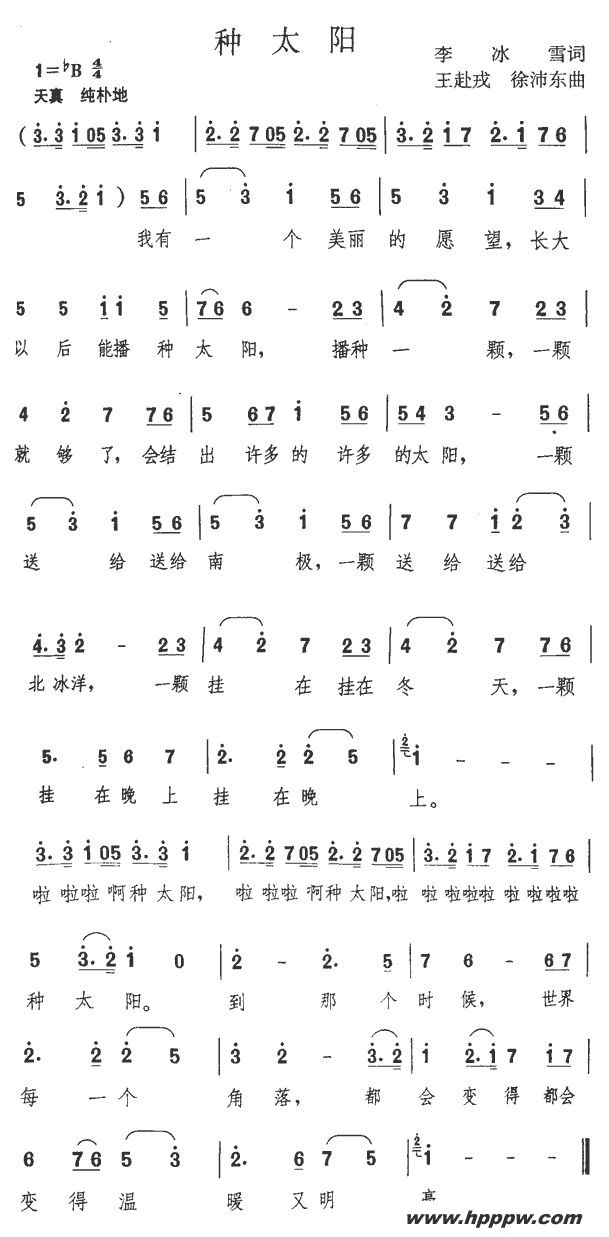 种 太 阳
1=♭B 4/4
李 冰 雪词
天真 纯朴地
王赴戎 徐沛东曲
(3·3 105 3·3 1 | 2·2 705 2·2 705 | 3·2 17 2·1 76 |
5 3·2 1) 56 | 5 3 1 56 | 5 3 1 34 |
我有 一 个 美丽 的 愿 望, 长大
5 5 11 5 | 76 6 - 23 | 4 2 7 23 |
以 后 能播 种 太 阳, 播种 一 颗, 一颗
4 2 7 76 | 5 67 1 56 | 54 3 - 56 |
就 够 了, 会结 出 许多 的 许多 的太 阳, 一颗
5 3 1 56 | 5 3 1 56 | 7 7 1 2 3 |
送 给 送给 南 极, 一颗 送 给 送给
4·3 2 - 23 | 4 2 7 23 | 4 2 7 76 |
北 冰 洋, 一颗 挂 在 挂在 冬 天, 一颗
5· 5 6 7 | 2· 2 2 5 | 2 1 - - - |
挂 在 晚 上 挂 在 晚 上。
3·3 105 3·3 1 | 2·2 705 2·2 705 | 3·2 17 2·1 76 |
啦 啦啦 啊种 太 阳, 啦 啦啦 啊种 太阳,啦 啦 啦啦啦 啦 啦啦啦
5 3·2 1 0 | 2 - 2· 5 | 7 6 - 67 |
种 太 阳。 到 那 个 时 候, 世界
2· 2 2 5 | 3 2 - 3·2 | 1 2·1 7 17 |
每 一 个 角 落, 都 会 变 得 都会
6 76 5 3 | 2· 6 7 5 | 2 1 - - ‖
变 得 温 暖 又 明 亮
www.hpppw.com